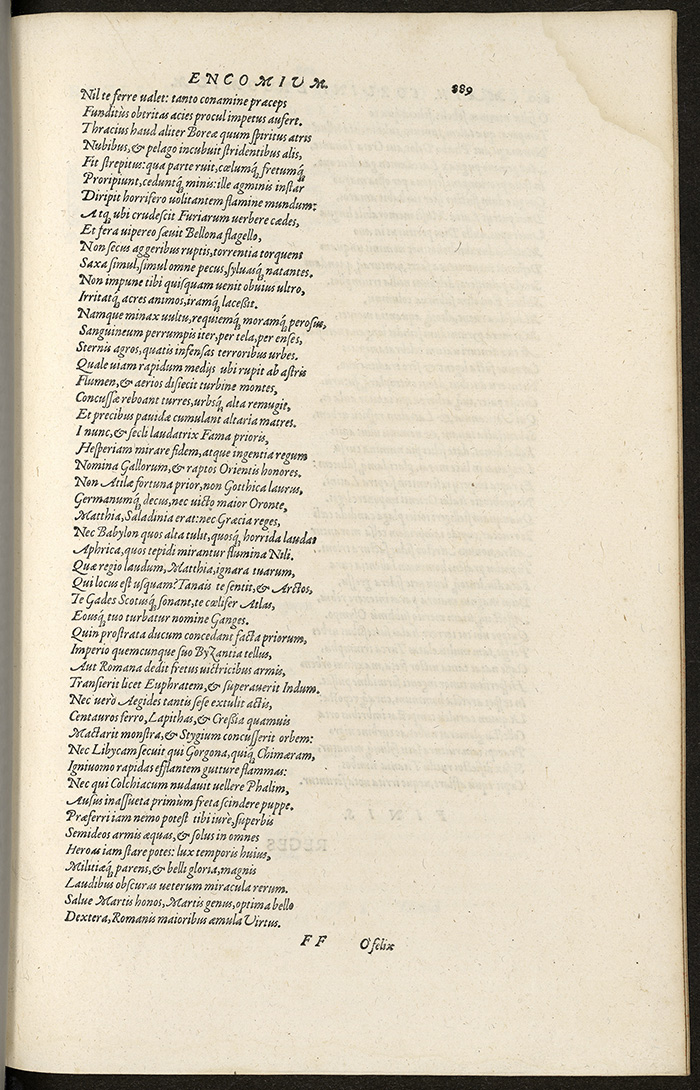 ENCOMIUM. 889
Nil te ferre ualet: tanto conamine præceps
Funditùs obtritas acies procul impetus aufert.
Thracius haud aliter Boreæ quum spiritus atris
Nubibus, & pelago incubuit stridentibus alis,
Fit strepitus: qua parte ruit, cœlumq́;, fretumq́;
Proripiunt, ceduntq́; minus: ille agminis instar
Diripit horrifero uolitantem flamine mundum:
Atq́; ubi crudescit Furiarum uerbere cædes,
Et fera uipereo sæuit Bellona flagello,
Non secus aggeribus ruptis, torrentia torquent
Saxa simul, simul omne pecus, syluasq́; natantes.
Non impune tibi quisquam uenit obuius ultro,
Irritatq́; acres animos, iramq́; lacessit.
Namque minax uultu, requiemq́; moramq́; perosus,
Sanguineum perrumpis iter, per tela, per enses,
Sternis agros, quatis infensas terroribus urbes.
Quale uiam rapidum medijs ubi rupit ab astris
Flumen, & aerios disiecit turbine montes,
Concussæ reboant turres, urbsq́; alta remugit,
Et precibus pauidæ cumulant altaria matres.
I nunc, & secli laudatrix Fama prioris,
Hesperiam mirare fidem, atque ingentia regum
Nomina Gallorum, & raptos Orientis honores.
Non Atilæ fortuna prior, non Gotthica laurus,
Germanumq́; decus, nec uicto maior Oronte,
Matthia, Saladinia erat: nec Græcia reges,
Nec Babylon quos alta tulit, quosq́; horrida laudat
Aphrica, quos tepidi mirantur flumina Nili.
Quæ regio laudum, Matthia, ignara tuarum,
Qui locus est usquam? Tanais te sentit, & Arctos,
Te Gades Scotusq́; sonant, te cœlifer Atlas,
Eousq́; tuo turbatur nomine Ganges.
Quin prostrata ducum concedant facta priorum,
Imperio quemcunque suo Byzantia tellus,
Aut Romana dedit fretus uictricibus armis,
Transierit licet Euphratem, & superauerit Indum.
Nec uerò Aegides tantis sese extulit actis,
Centauros ferro, Lapithas, & Cressia quamuis
Mactarit monstra, & Stygium concusserit orbem:
Nec Libycam secuit qui Gorgona, quiq́; Chimæram,
Igniuomo rapidas efflantem gutture flammas:
Nec qui Colchiacum nudauit uellere Phasim,
Ausus inassueta primùm freta scindere puppe.
Præferri iam nemo potest tibi iurè, superbis
Semideos armis æquas, & solus in omnes
Heroas iam stare potes: lux temporis huius,
Militiæq́; parens, & belli gloria, magnis
Laudibus obscuras ueterum miracula rerum.
Salue Martis honos, Martis genus, optima bello
Dextera, Romanis maioribus æmula Virtus.
FF O' felix